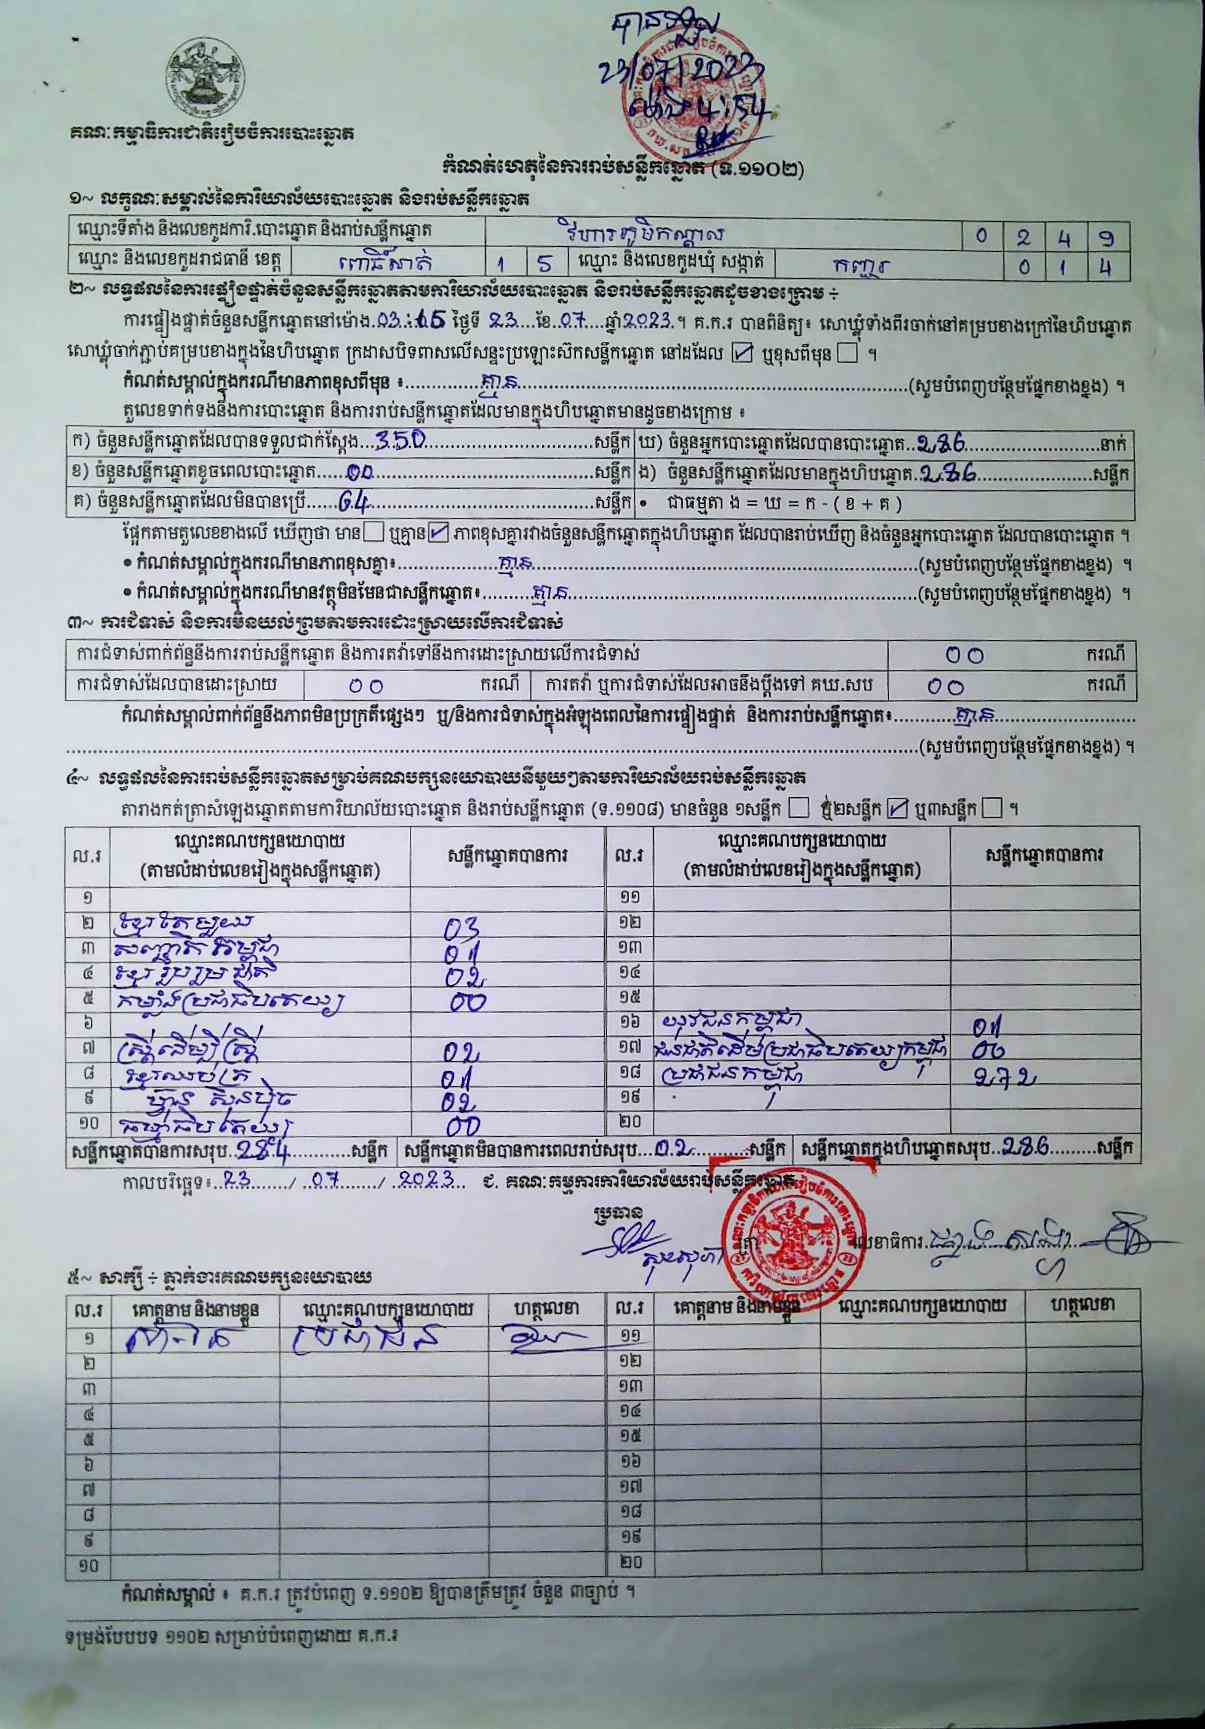 បានទទួល
23/07/2023
ម៉ោង 4:54
គណៈកម្មាធិការជាតិរៀបចំការបោះឆ្នោត
កំណត់ហេតុនៃការរាប់សន្លឹកឆ្នោត (ទ.១១០២)
១~ លក្ខណៈសម្គាល់នៃការិយាល័យបោះឆ្នោត និងរាប់សន្លឹកឆ្នោត
ឈ្មោះទីតាំង និងលេខកូដការិ.បោះឆ្នោត និងរាប់សន្លឹកឆ្នោត វិហារភូមិកណ្តាល 0 2 4 9
ឈ្មោះ និងលេខកូដរាជធានី ខេត្ត ពោធិ៍សាត់ 1 5 ឈ្មោះ និងលេខកូដឃុំ សង្កាត់ កញ្ជរ 0 1 4
២~ លទ្ធផលនៃការផ្ទៀងផ្ទាត់ចំនួនសន្លឹកឆ្នោតតាមការិយាល័យបោះឆ្នោត និងរាប់សន្លឹកឆ្នោតដូចខាងក្រោម ÷
ការផ្ទៀងផ្ទាត់ចំនួនសន្លឹកឆ្នោតនៅម៉ោង.03:15 ថ្ងៃទី 23 ខែ.07 ឆ្នាំ2023 ។ គ.ក.រ បានពិនិត្យ៖ សោឃ្លុំទាំងពីរចាក់នៅគម្របខាងក្រៅនៃហិបឆ្នោត
សោឃ្លុំចាក់ភ្ជាប់គម្របខាងក្នុងនៃហិបឆ្នោត ក្រដាសបិទពាសលើសន្ទះប្រឡោះស៊កសន្លឹកឆ្នោត នៅដដែល ☑ ឬខុសពីមុន ☐ ។
កំណត់សម្គាល់ក្នុងករណីមានភាពខុសពីមុន ៖ គ្មាន (សូមបំពេញបន្ថែមផ្នែកខាងខ្នង) ។
តួលេខទាក់ទងនឹងការបោះឆ្នោត និងការរាប់សន្លឹកឆ្នោតដែលមានក្នុងហិបឆ្នោតមានដូចខាងក្រោម ៖
ក) ចំនួនសន្លឹកឆ្នោតដែលបានទទួលជាក់ស្តែង 350 សន្លឹក ឃ) ចំនួនអ្នកបោះឆ្នោតដែលបានបោះឆ្នោត 286 នាក់
ខ) ចំនួនសន្លឹកឆ្នោតខូចពេលបោះឆ្នោត 00 សន្លឹក ង) ចំនួនសន្លឹកឆ្នោតដែលមានក្នុងហិបឆ្នោត 286 សន្លឹក
គ) ចំនួនសន្លឹកឆ្នោតដែលមិនបានប្រើ 64 សន្លឹក • ជាធម្មតា ង = ឃ = ក - ( ខ + គ )
ផ្អែកតាមតួលេខខាងលើ ឃើញថា មាន ☐ ឬគ្មាន ☑ ភាពខុសគ្នារវាងចំនួនសន្លឹកឆ្នោតក្នុងហិបឆ្នោត ដែលបានរាប់ឃើញ និងចំនួនអ្នកបោះឆ្នោត ដែលបានបោះឆ្នោត ។
• កំណត់សម្គាល់ក្នុងករណីមានភាពខុសគ្នា៖ គ្មាន (សូមបំពេញបន្ថែមផ្នែកខាងខ្នង) ។
• កំណត់សម្គាល់ក្នុងករណីមានវត្ថុមិនមែនជាសន្លឹកឆ្នោត៖ គ្មាន (សូមបំពេញបន្ថែមផ្នែកខាងខ្នង) ។
៣~ ការជំទាស់ និងការមិនយល់ព្រមតាមការដោះស្រាយលើការជំទាស់
ការជំទាស់ពាក់ព័ន្ធនឹងការរាប់សន្លឹកឆ្នោត និងការតវ៉ាទៅនឹងការដោះស្រាយលើការជំទាស់ 00 ករណី
ការជំទាស់ដែលបានដោះស្រាយ 00 ករណី ការតវ៉ា ឬការជំទាស់ដែលអាចនឹងប្តឹងទៅ គឃ.សប 00 ករណី
កំណត់សម្គាល់ពាក់ព័ន្ធនឹងភាពមិនប្រក្រតីផ្សេងៗ ឬ/និងការជំទាស់ក្នុងអំឡុងពេលនៃការផ្ទៀងផ្ទាត់ និងការរាប់សន្លឹកឆ្នោត៖ គ្មាន
(សូមបំពេញបន្ថែមផ្នែកខាងខ្នង) ។
៤~ លទ្ធផលនៃការរាប់សន្លឹកឆ្នោតសម្រាប់គណបក្សនយោបាយនីមួយៗតាមការិយាល័យរាប់សន្លឹកឆ្នោត
តារាងកត់ត្រាសំឡេងឆ្នោតតាមការិយាល័យបោះឆ្នោត និងរាប់សន្លឹកឆ្នោត (ទ.១១០៨) មានចំនួន ១សន្លឹក ☐ ឬ២សន្លឹក ☑ ឬ៣សន្លឹក ☐ ។
ល.រ ឈ្មោះគណបក្សនយោបាយ (តាមលំដាប់លេខរៀងក្នុងសន្លឹកឆ្នោត) សន្លឹកឆ្នោតបានការ ល.រ ឈ្មោះគណបក្សនយោបាយ (តាមលំដាប់លេខរៀងក្នុងសន្លឹកឆ្នោត) សន្លឹកឆ្នោតបានការ
១ ១១
២ ខ្មែរតែមួយ 03 ១២
៣ សញ្ជាតិកម្ពុជា 01 ១៣
៤ ខ្មែររួបរួមជាតិ 02 ១៤
៥ កម្លាំងប្រជាធិបតេយ្យ 00 ១៥
៦ ១៦ យុវជនកម្ពុជា 01
៧ ស្ត្រីដើម្បីស្ត្រី 02 ១៧ ជនជាតិដើមប្រជាធិបតេយ្យកម្ពុជា 00
៨ ខ្មែរឈប់ក្រ 01 ១៨ ប្រជាជនកម្ពុជា 272
៩ ហ្វ៊ុនស៊ិនប៉ិច 02 ១៩
១០ ធម្មាធិបតេយ្យ 00 ២០
សន្លឹកឆ្នោតបានការសរុប 284 សន្លឹក សន្លឹកឆ្នោតមិនបានការពេលរាប់សរុប 02 សន្លឹក សន្លឹកឆ្នោតក្នុងហិបឆ្នោតសរុប 286 សន្លឹក
កាលបរិច្ឆេទ៖ 23 / 07 / 2023 ជ. គណៈកម្មការការិយាល័យរាប់សន្លឹកឆ្នោត
ប្រធាន
លេខាធិការ
៥~ សាក្សី ÷ ភ្នាក់ងារគណបក្សនយោបាយ
ល.រ គោត្តនាម និងនាមខ្លួន ឈ្មោះគណបក្សនយោបាយ ហត្ថលេខា ល.រ គោត្តនាម និងនាមខ្លួន ឈ្មោះគណបក្សនយោបាយ ហត្ថលេខា
១ ប្រជាជន ១១
២ ១២
៣ ១៣
៤ ១៤
៥ ១៥
៦ ១៦
៧ ១៧
៨ ១៨
៩ ១៩
១០ ២០
កំណត់សម្គាល់ ៖ គ.ក.រ ត្រូវបំពេញ ទ.១១០២ ឱ្យបានត្រឹមត្រូវ ចំនួន ៣ច្បាប់ ។
ទម្រង់បែបបទ ១១០២ សម្រាប់បំពេញដោយ គ.ក.រ